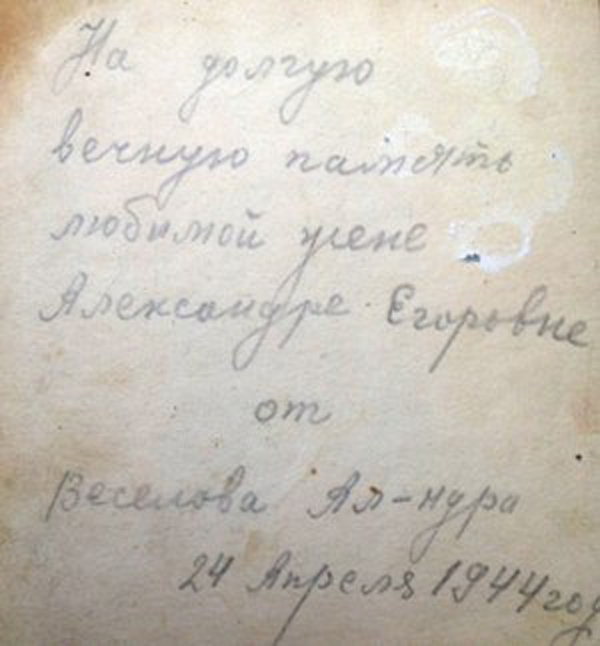 На долгую
вечную память
любимой жене
Александре Егоровне
от
Веселова Ал-ндра
24 Апреля 1944 год